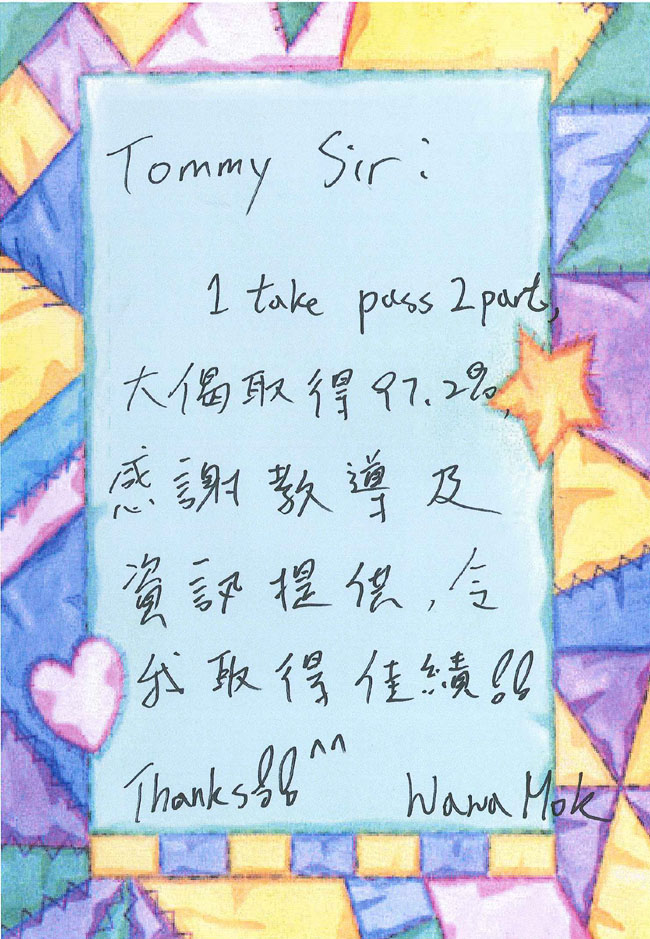 Tommy Sir :
1 take pass 2 parts,
大偈取得97.2%,
感謝教導及
資訊提供,令
我取得佳績!!
Thanks!! ^^ Wawa Mok